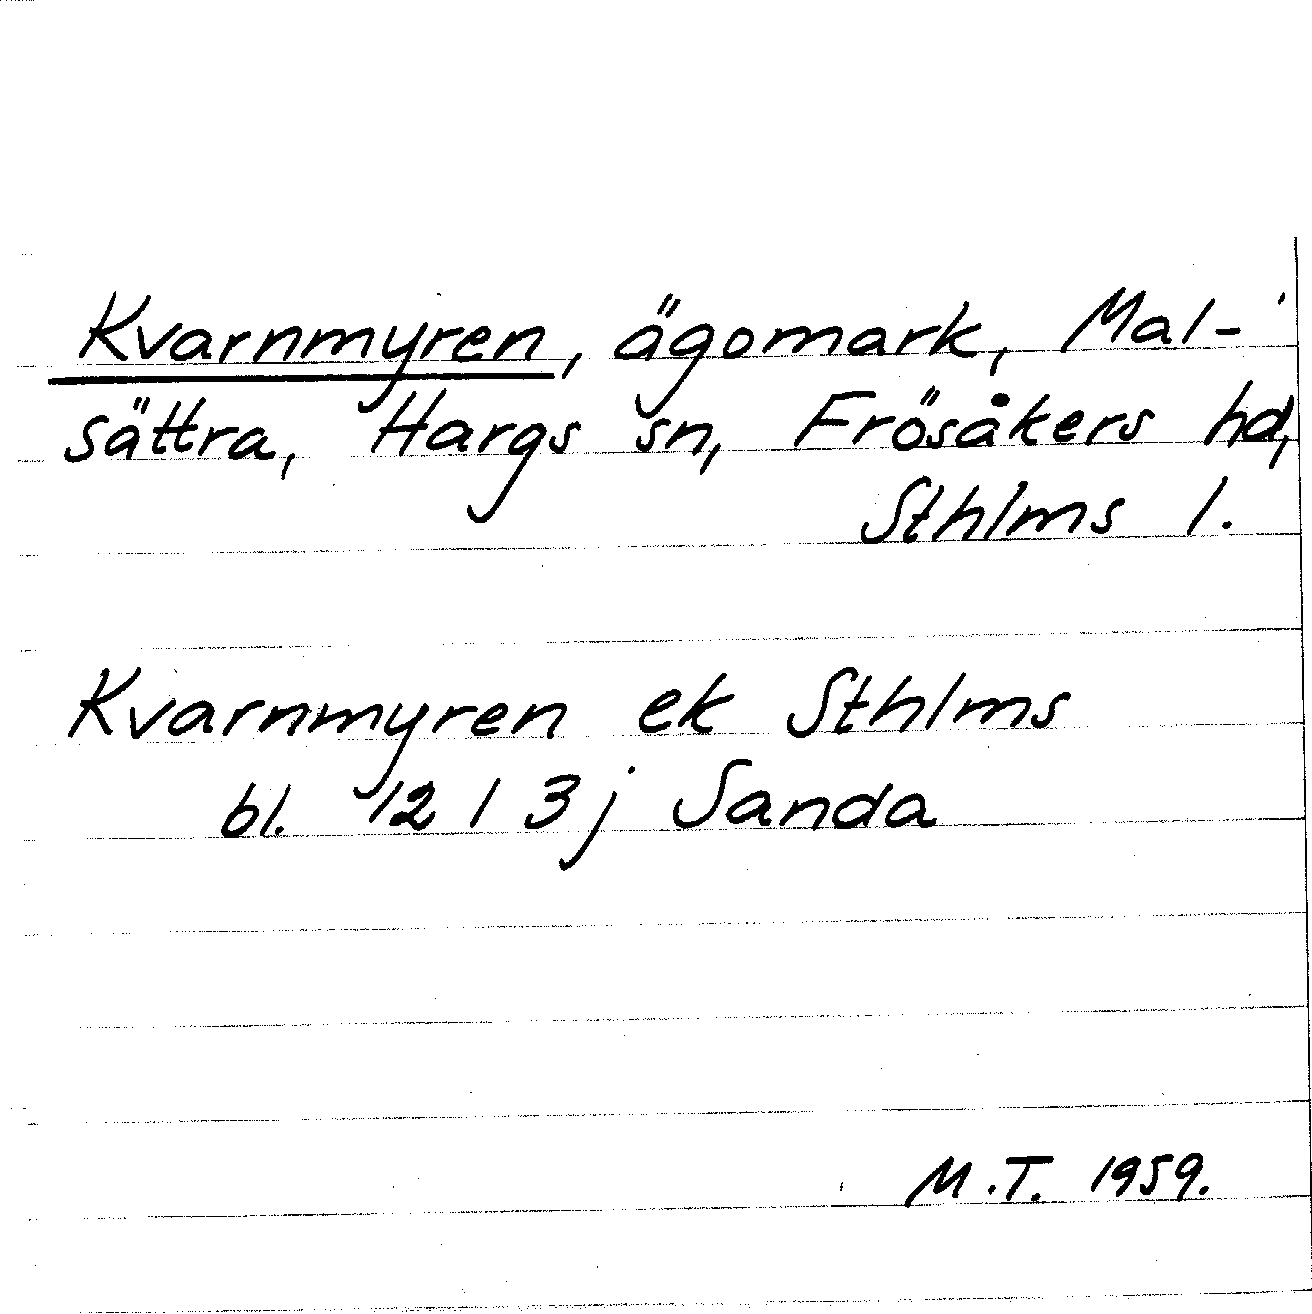 Kvarnmyren, ägomark, Mal-
sättra, Hargs sn, Frösåkers hd,
Sthlms l.
Kvarnmyren ek Sthlms
bl. 12 I 3 j Sanda
M.T. 1959.